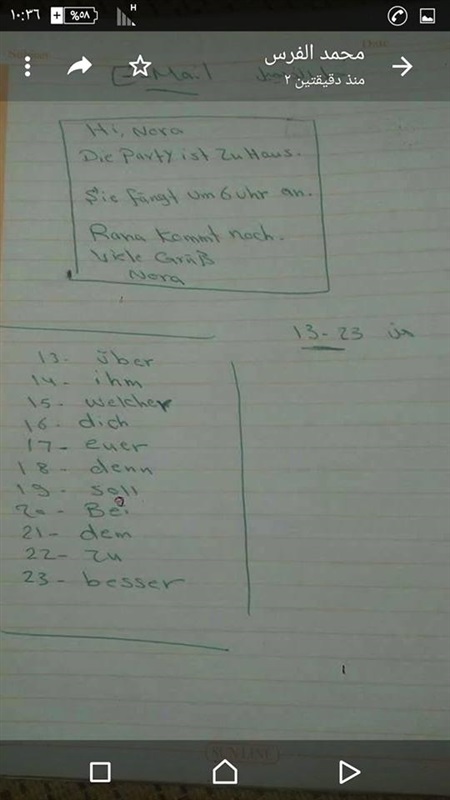 ١٠:٣٦
%٥٨
H
محمد الفرس
منذ دقيقتين ٢
Date
E-Mail
Hi, Nora
Die Party ist Zu Haus.
Sie fängt um 6 uhr an.
Rana Kommt noch.
Viele Grüß
Nora
13-23
13- über
14- ihm
15- welcher
16- dich
17- euer
18- denn
19- soll
20- Bei
21- dem
22- zu
23- besser
SUNLINE